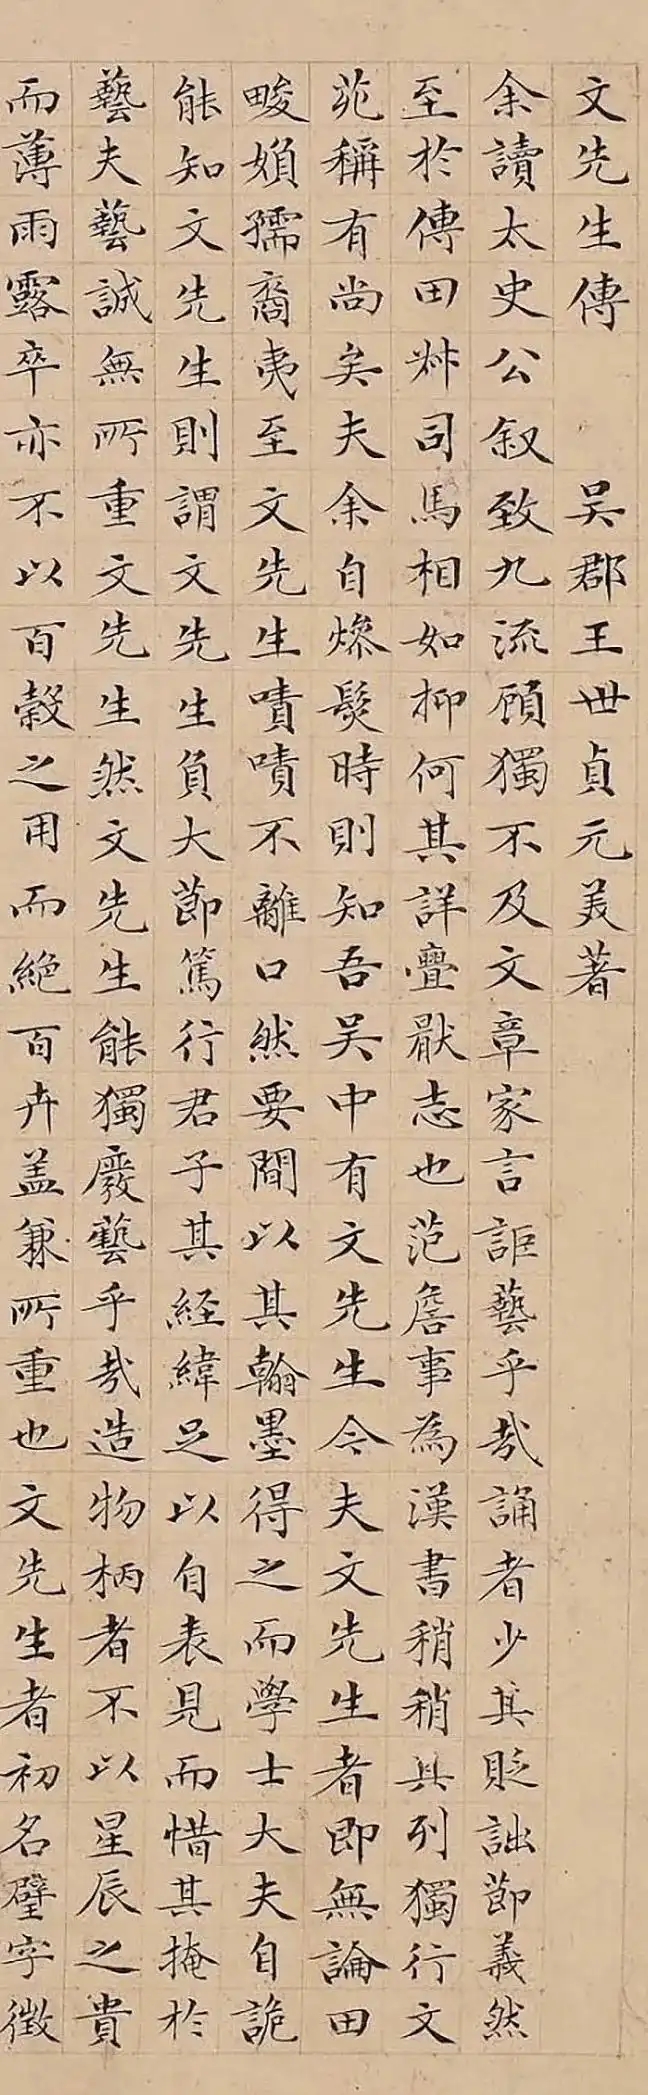 文先生傳 吳郡王世貞元美著
余讀太史公叙致九流顧獨不及文章家言詎藝乎哉誦者少其貶詘節義然
至於傳田叔司馬相如抑何其詳疊猒志也范詹事為漢書稍稍具列獨行文
苑稱有尚矣夫余自燥髮時則知吾吳中有文先生今夫文先生者即無論田
畯媍孺裔夷至文先生嘖嘖不離口然要間以其翰墨得之而學士大夫自詭
能知文先生則謂文先生負大節篤行君子其経緯足以自表見而惜其掩於
藝夫藝誠無所重文先生然文先生能獨廢藝乎哉造物柄者不以星辰之貴
而薄雨露卒亦不以百穀之用而絶百卉盖兼所重也文先生者初名璧字徵